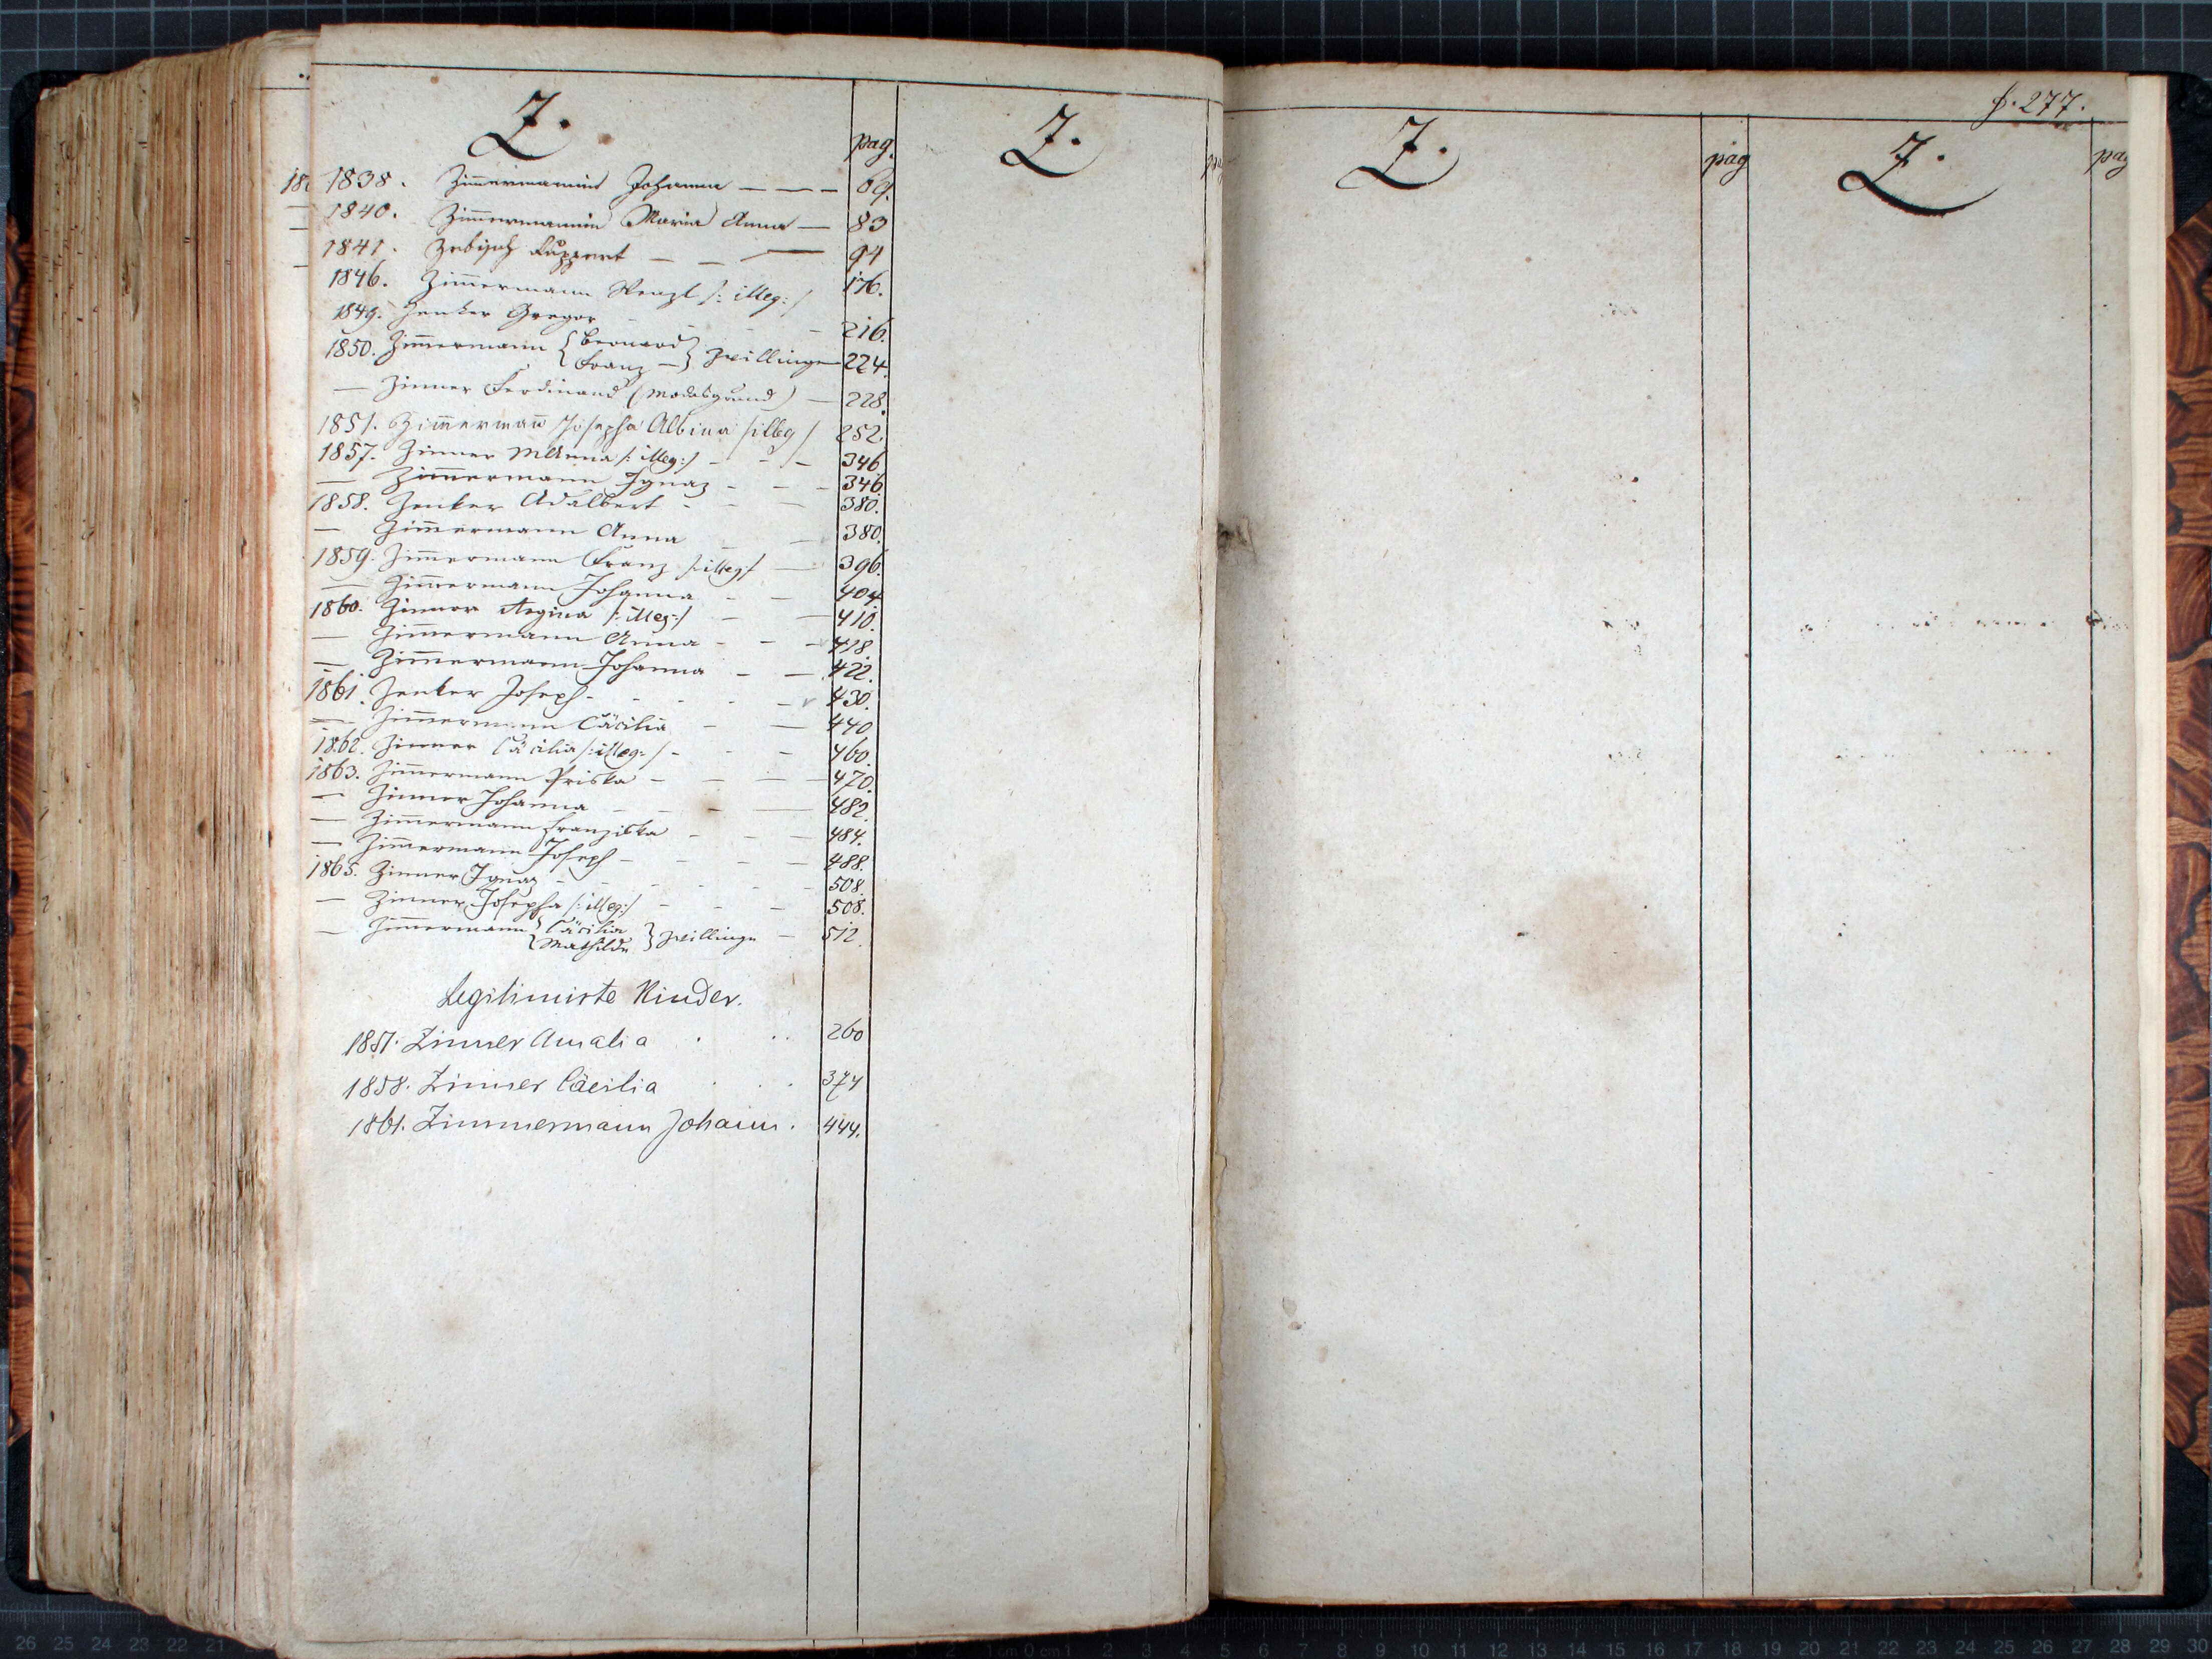 Z.
pag.
1838. Zimmermannin Johanna — — — 69.
1840. Zimmermannin Maria Anna — 83
1841. Zebisch Ruppert — — — 94
1846. Zimmermann Wenzl /: illeg: / 176.
1849. Zenker Gregor - - - 216.
1850. Zimmermann { Bernard
Franz — } Zwillinge 224.
— Zinner Ferdinand (Modesgrund) — 228.
1851. Zimmermann Josepha Albina /illeg/ 252.
1857. Zinner M Anna /: illeg:/ - - - 346
— Zimmermann Ignaz - - - 346.
1858. Zenker Adalbert - - — 380.
— Zimmermann Anna — — 380.
1859. Zimmermann Franz /: illeg:/ — 396.
— Zimmermann Johanna - — 404
1860. Zinner Regina /: illeg:/ — — 410.
— Zimmermann Anna - - - 418.
— Zimmermann Johanna - — 422.
1861. Zenker Joseph - - - - 430.
— Zimmermann Cäcilia - — 440
1862. Zinner Cäcilia /: illeg: / - - — 460.
1863. Zimmermann Priska — — — 470.
— Zinner Johanna — — — 482.
— Zimmermann Franziska - — — 484.
— Zimmermann Joseph — - - — 488.
1865. Zinner Ignaz - - - - - 508.
— Zinner Josepha /: illeg:/ - - — 508.
— Zimmermann { Cäcilia
Mathilde } Zwillinge — 512.
Legitimirte Kinder.
1851. Zinner Amalia . .. 260
1858. Zinner Cäcilia . . . 374
1861. Zimmermann Johann. 444.
Z.
pag
Z.
pag
f. 277.
Z.
pag
18